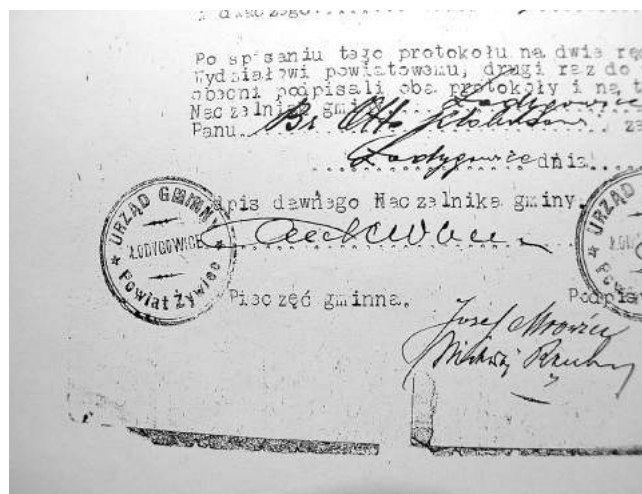 Po spisaniu tego protokołu na dwie rę
Wydziałowi powiatowemu, drugi raz do
obecni podpisali oba protokoły i na t
Naczelnika gminy Łodygowice
Panu Br. Otto za
Łodygowice dnia
dpis dawnego Naczelnika gminy.
URZĄD GMINNY
ŁODYGOWICE
Powiat Żywiec
URZĄD
ŁODY
Powi
Pieczęć gminna.
Podpis
Józef Mrowiec